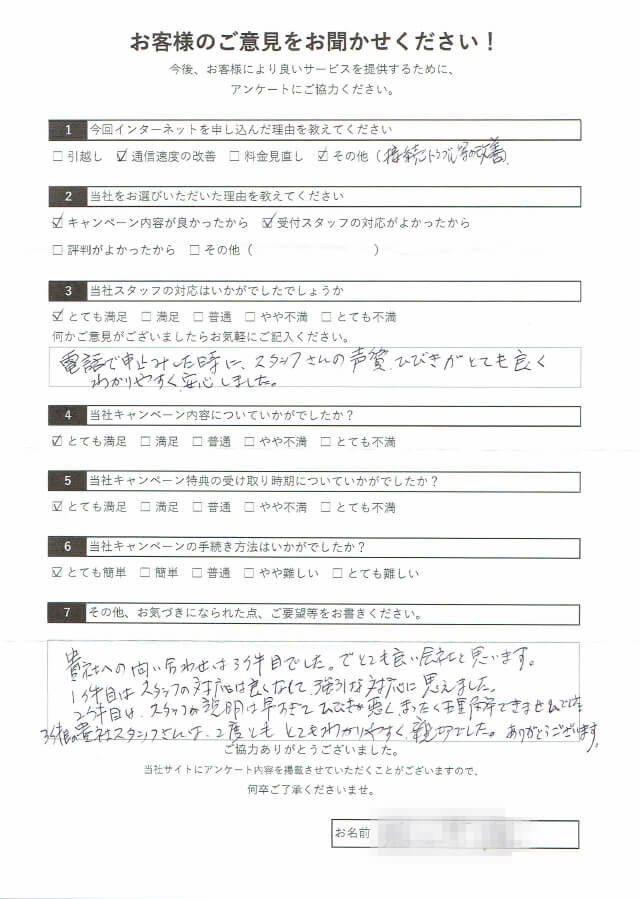 お客様のご意見をお聞かせください！
今後、お客様により良いサービスを提供するために、
アンケートにご協力ください。
1 今回インターネットを申し込んだ理由を教えてください
□ 引越し ☑ 通信速度の改善 □ 料金見直し ☑ その他 (接続トラブル等の改善)
2 当社をお選びいただいた理由を教えてください
☑ キャンペーン内容が良かったから ☑ 受付スタッフの対応がよかったから
□ 評判がよかったから □ その他 ( )
3 当社スタッフの対応はいかがでしたでしょうか
☑ とても満足 □ 満足 □ 普通 □ やや不満 □ とても不満
何かご意見がございましたらお気軽にご記入ください。
電話で申込みした時に、スタッフさんの声質、ひびきがとても良く
わかりやすく、安心しました。
4 当社キャンペーン内容についていかがでしたか？
☑ とても満足 □ 満足 □ 普通 □ やや不満 □ とても不満
5 当社キャンペーン特典の受け取り時期についていかがでしたか？
☑ とても満足 □ 満足 □ 普通 □ やや不満 □ とても不満
6 当社キャンペーンの手続き方法はいかがでしたか？
☑ とても簡単 □ 簡単 □ 普通 □ やや難しい □ とても難しい
7 その他、お気づきになられた点、ご要望等をお書きください。
貴社への問い合わせは3件目でした。でとても良い会社と思います。
1件目はスタッフの対応は良くなくて、強引な対応に思えました。
2件目は、スタッフの説明は早すぎてひびきが悪く、まったく理解できませんでした
3件目の貴社スタッフさんは、2度とも とてもわかりやすく、親切でした。ありがとうございます。
ご協力ありがとうございました。
当社サイトにアンケート内容を掲載させていただくことがございますので、
何卒ご了承くださいませ。
お名前